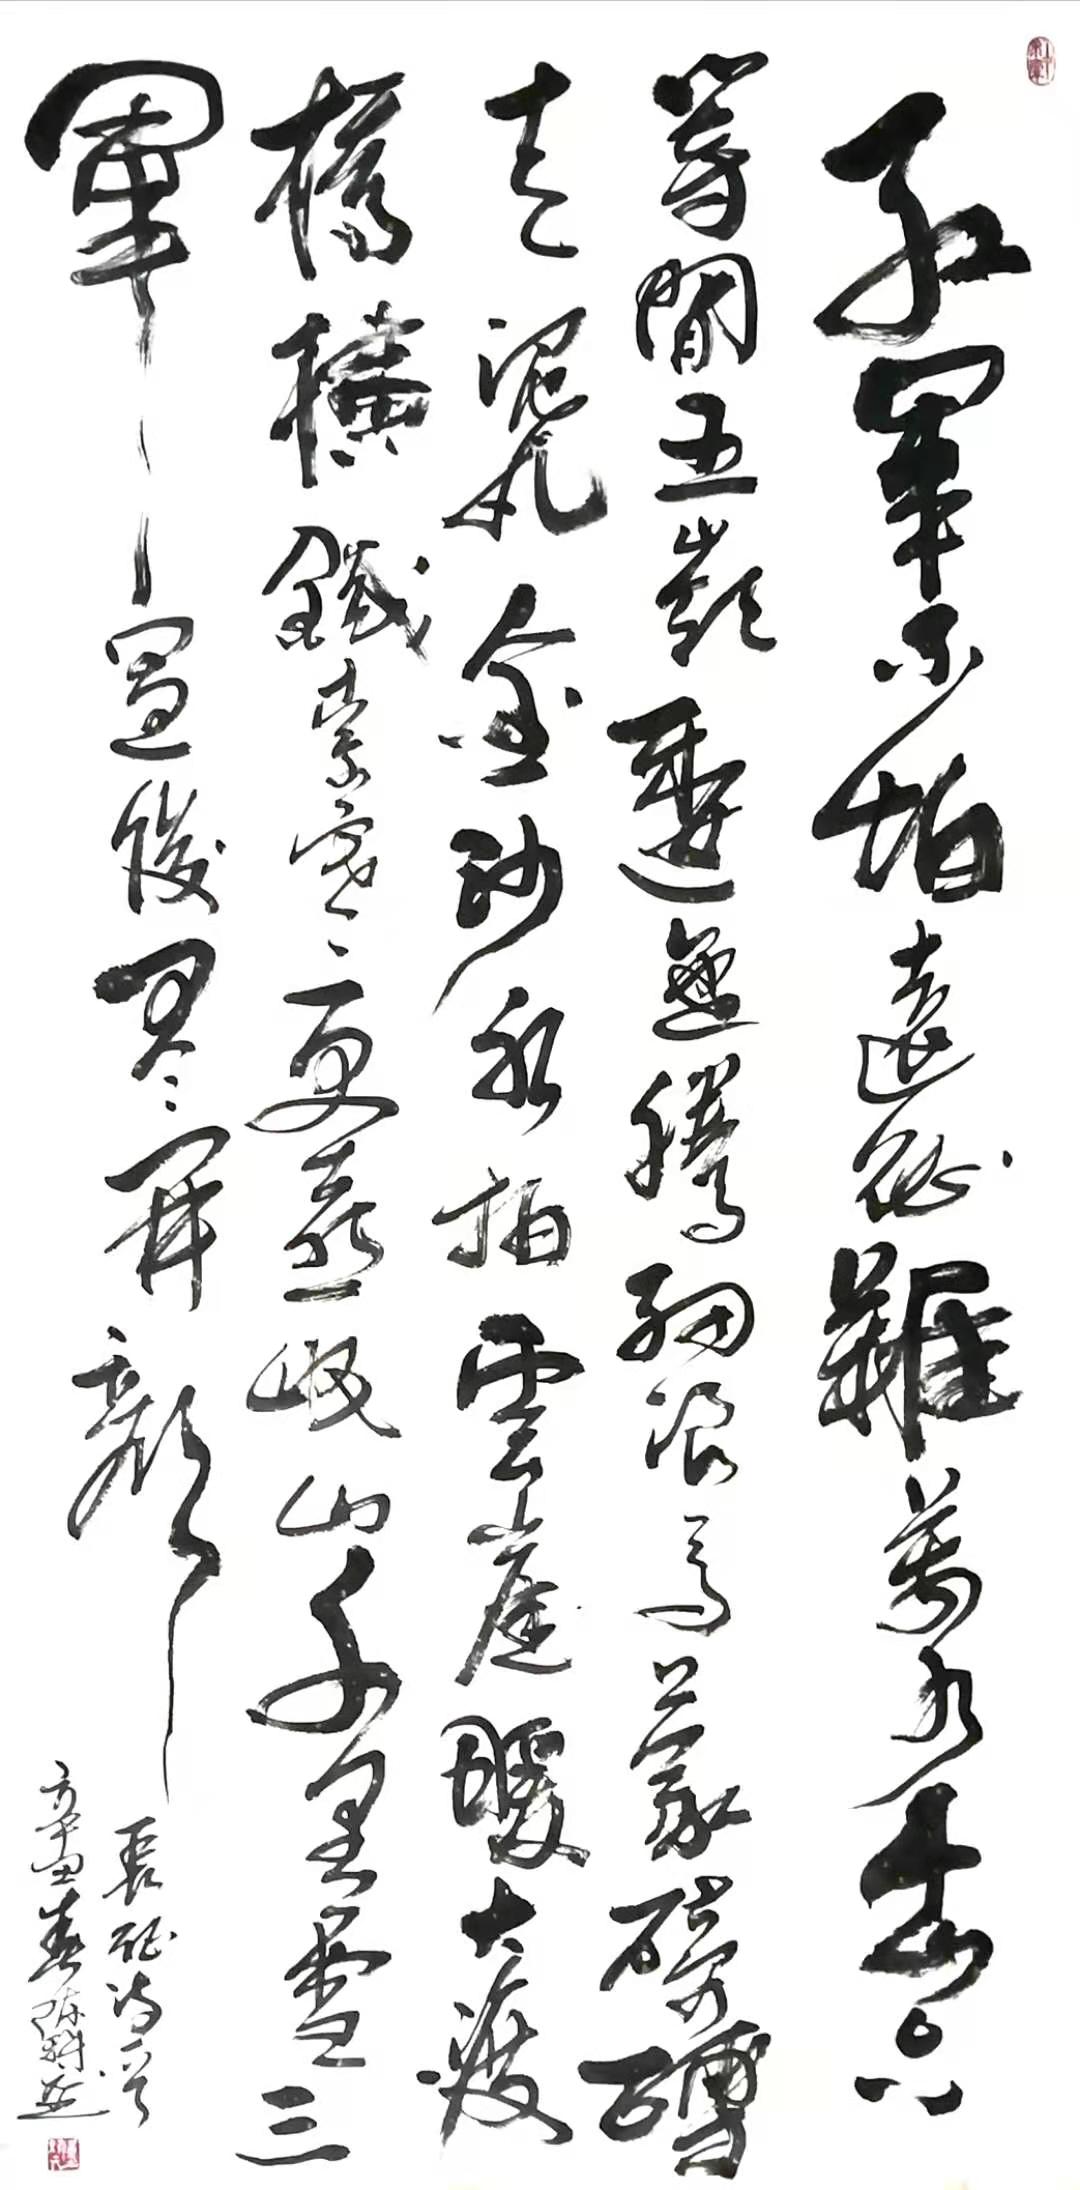 紅軍不怕遠征難萬水千山只
等閒五嶺逶迤騰細浪烏蒙磅礴
走泥丸金沙水拍雲崖暖大渡
橋橫鐵索寒更喜岷山千里雪三
軍過後尽開顏
長征詩
辛丑春